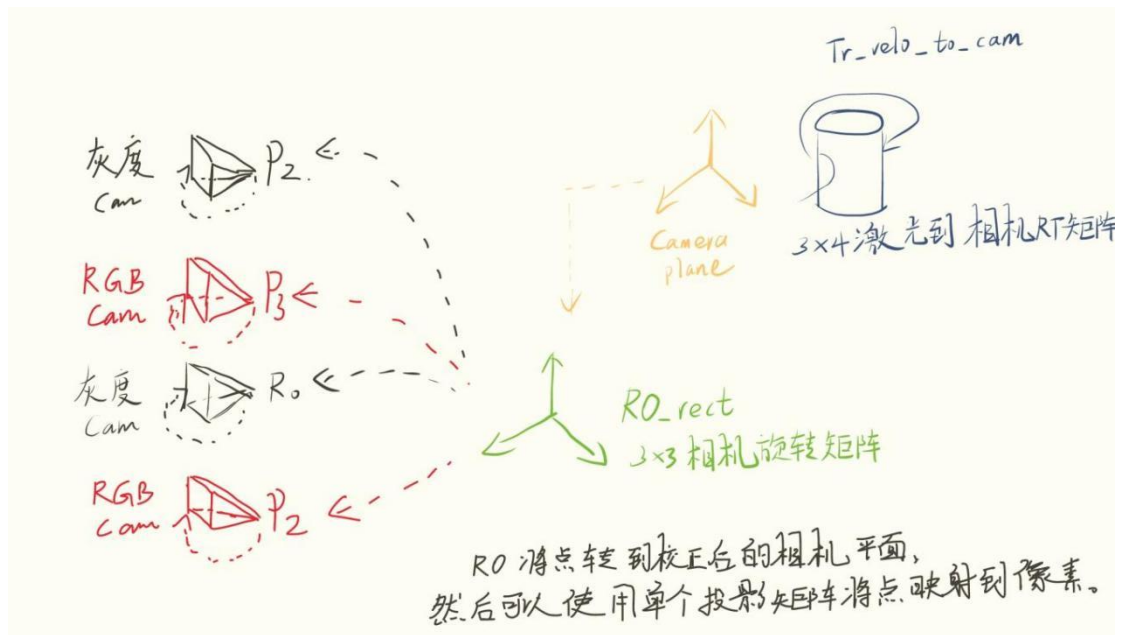 Tr_velo_to_cam
灰度
Cam
P2.
RGB
Cam
P3
灰度
Cam
R0
RGB
Cam
P2
Camera
plane
3×4激光到相机RT矩阵
R0_rect
3×3相机旋转矩阵
R0 将点转到校正后的相机平面,
然后可以使用单个投影矩阵将点映射到像素。